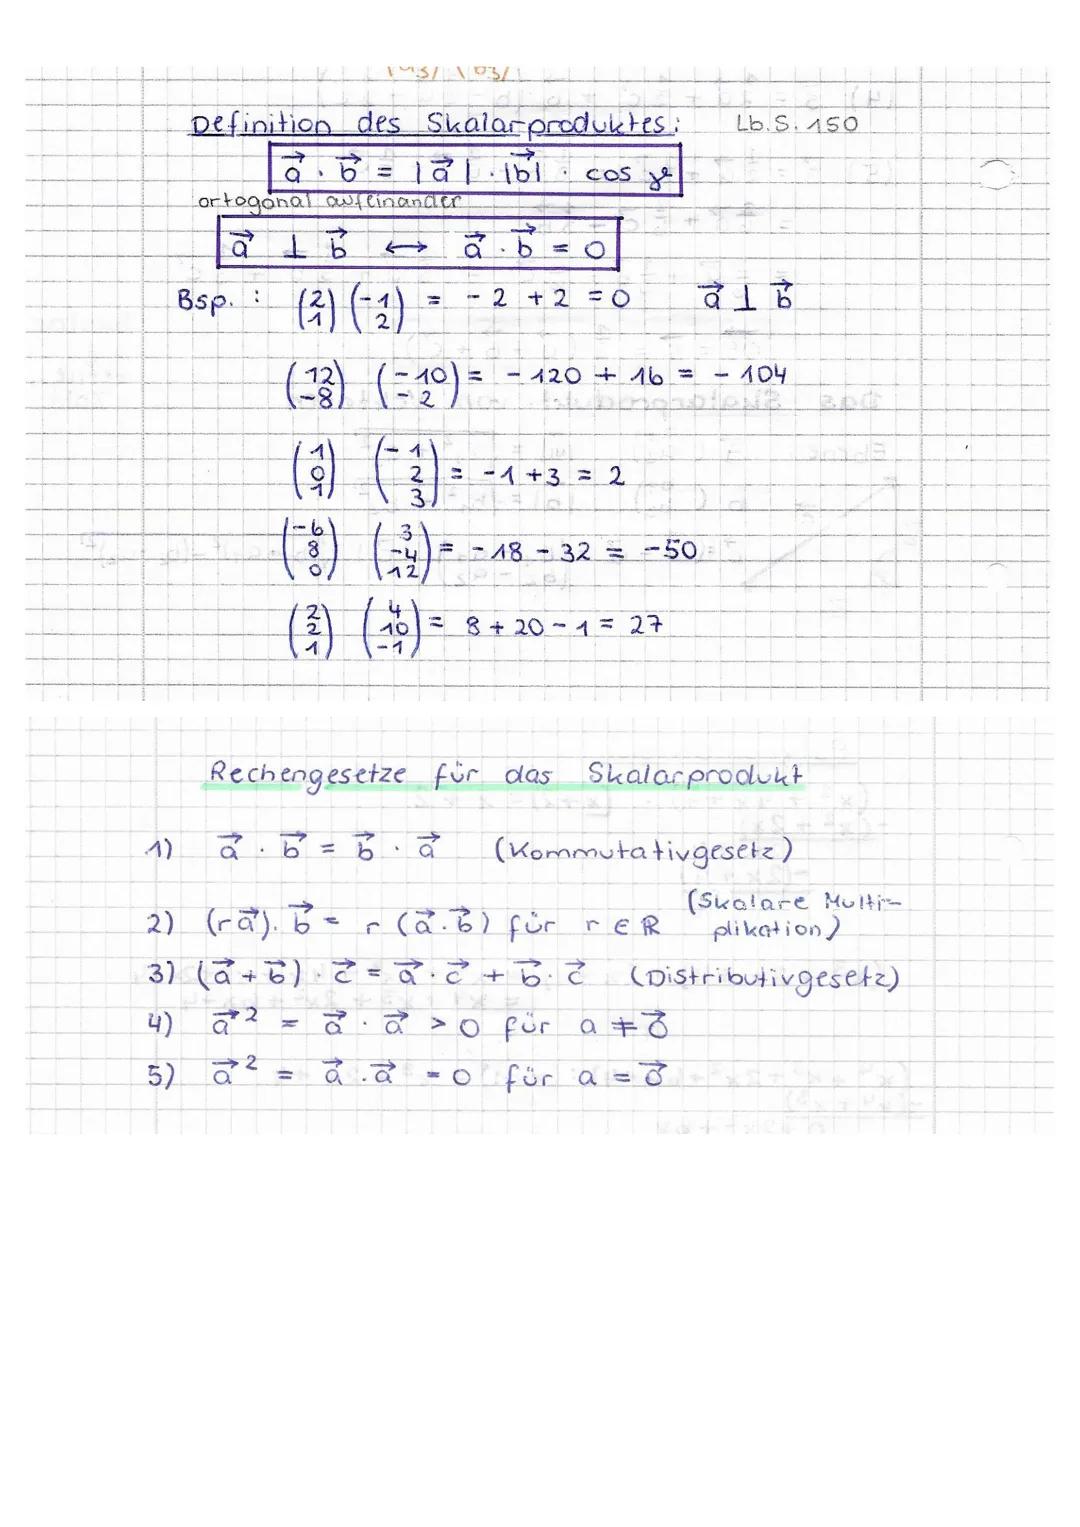 Definition des Skalarproduktes: Lb. S. 150
a⃗ · b⃗ = |a⃗| · |b⃗| · cos γ
ortogonal aufeinander
a⃗ ⊥ b⃗ ↔ a⃗ · b⃗ = 0
Bsp. : (2 1) (-1 2) = -2 + 2 = 0 a⃗ ⊥ b⃗
(12 -8) (-10 -2) = -120 + 16 = -104
(1 0 1) (-1 2 3) = -1 + 3 = 2
(-6 8 0) (3 -4 12) = -18 - 32 = -50
(2 2 1) (4 10 -1) = 8 + 20 - 1 = 27
Rechengesetze für das Skalarprodukt
1) a⃗ · b⃗ = b⃗ · a⃗ (Kommutativgesetz)
2) (r a⃗) · b⃗ = r (a⃗ · b⃗) für r ∈ ℝ (Skalare Multi-
plikation)
3) (a⃗ + b⃗) · c⃗ = a⃗ · c⃗ + b⃗ · c⃗ (Distributivgesetz)
4) a⃗² = a⃗ · a⃗ > 0 für a ≠ 0⃗
5) a⃗² = a⃗ · a⃗ = 0 für a = 0⃗